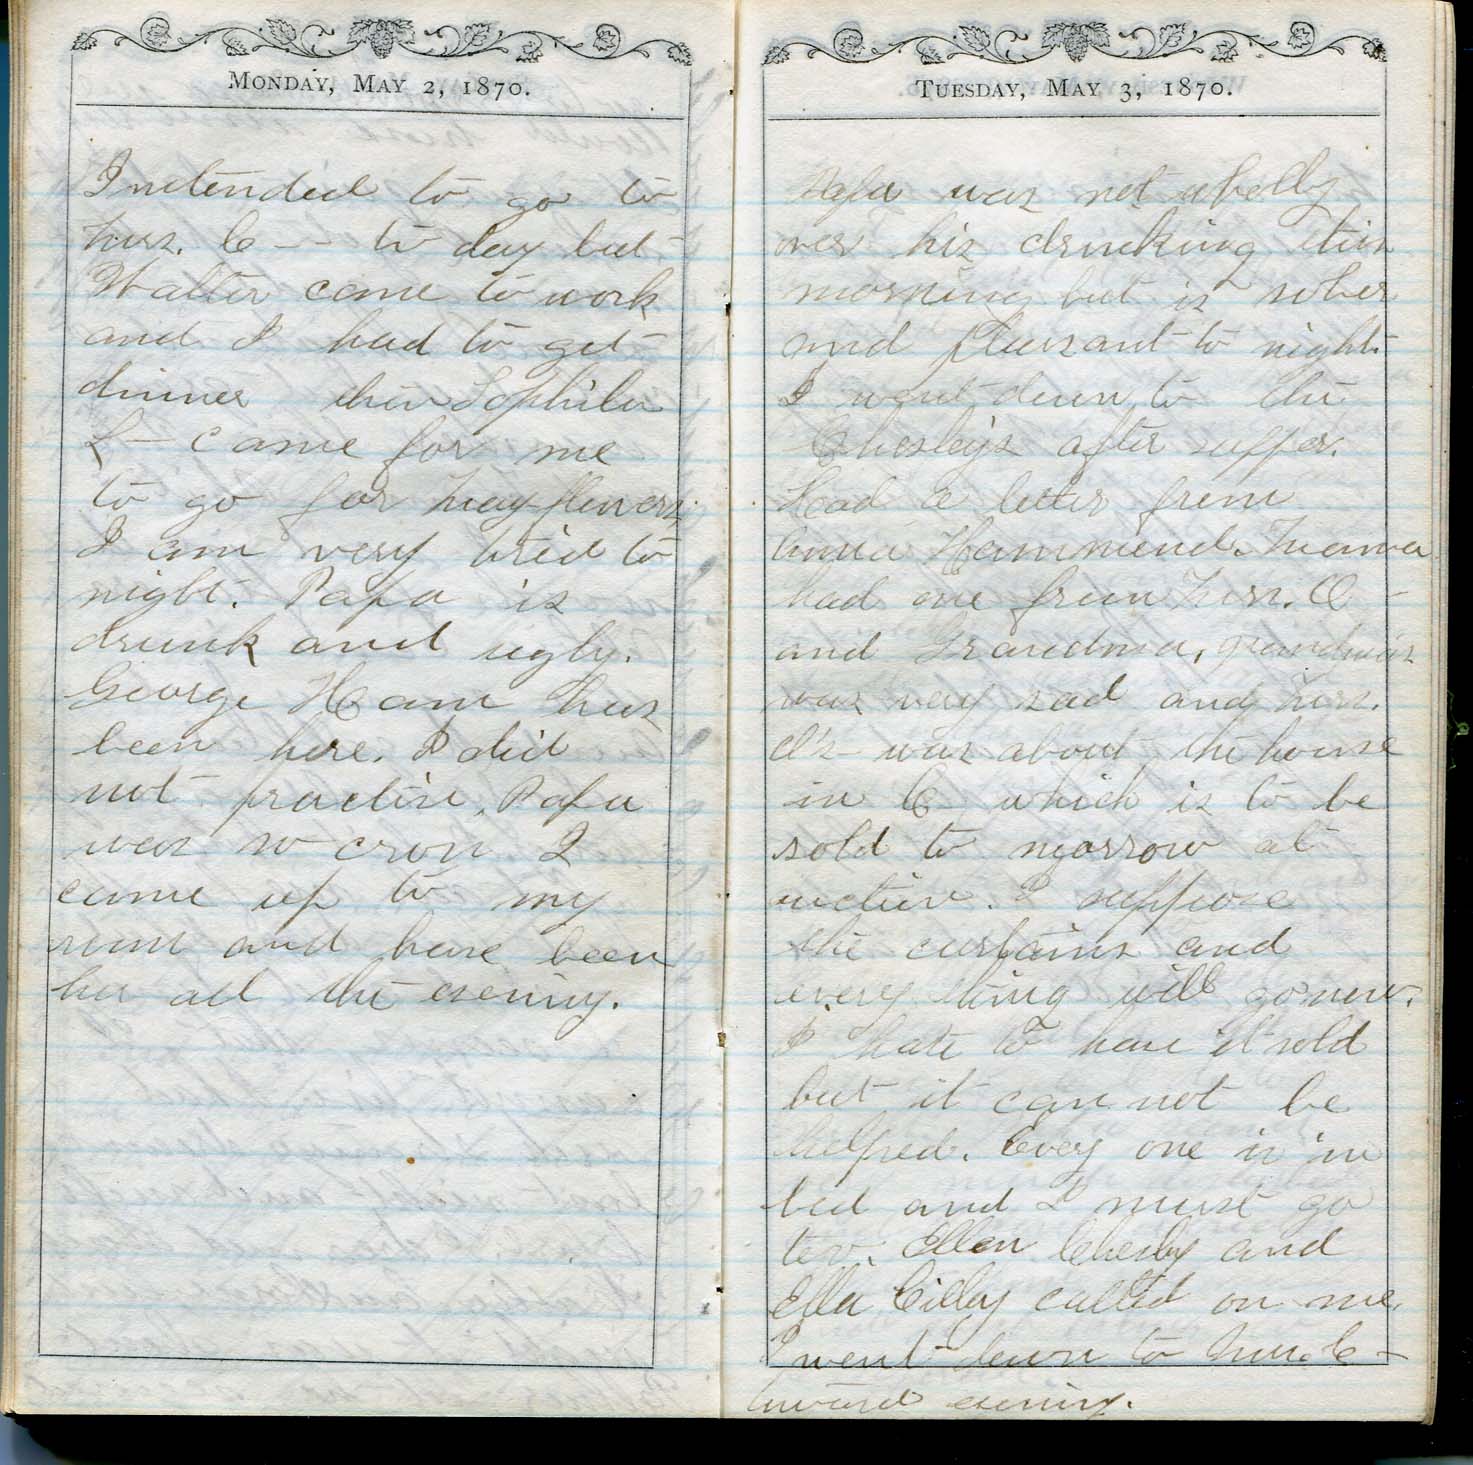 MONDAY, MAY 2, 1870.
I intended to go to
Mrs. C -- to day but
Walter came to work
and I had to get
dinner then Sophila
L - came for me
to go for May flowers.
I am very tired to
night. Papa is
drunk and ugly.
George Ham has
been here. I did
not practise. Papa
was so cross I
came up to my
room and have been
her all the evening.
TUESDAY, MAY 3, 1870.
Papa was not wholly
over his drinking this
morning but is sober
and pleasant to night.
I went down to the
Chesley's after supper.
Had a letter from
Anna Hammond. Mama
had one from Mrs. O -
and Grandma, grandma's
was very sad and Mrs.
O's was about the house
in C - which is to be
sold to morrow at
auction. I suppose
the curtains and
every thing will go now.
I hate to have it sold
but it can not be
helped. Every one is in
bed and I must go
too. Ellen Chesley and
Ella Cilley called on me.
I went down to Mrs. C -
toward evening.